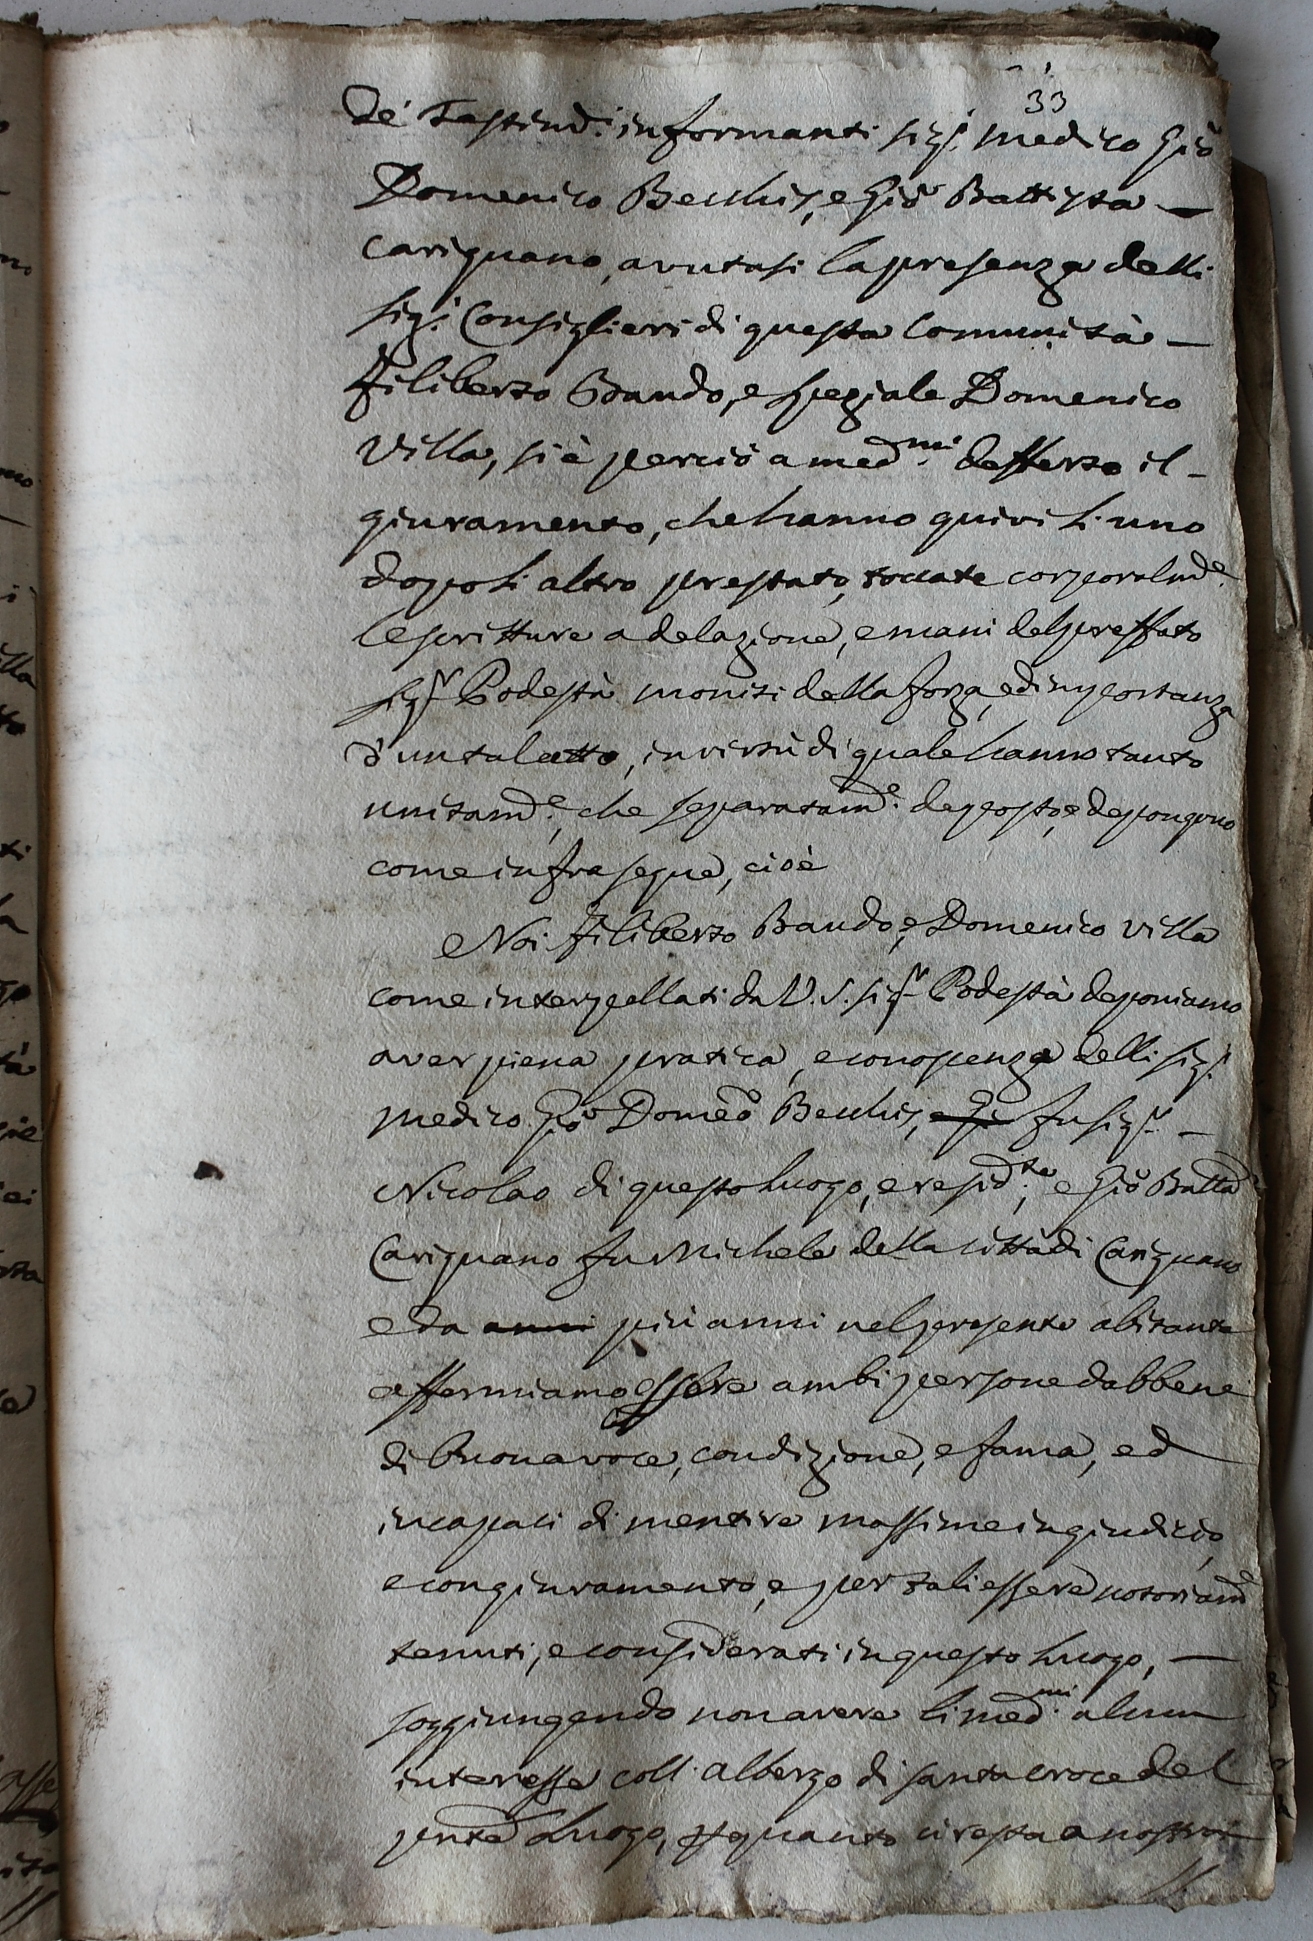 33
de' Tastimd.i informanti sig.i medico Giõ
Domenico Becchis, e Giõ Battista —
Carignano, avutasi la presenza delli
sig.i Consiglieri di questa Comunità —
Filiberto Baudo, e speziale Domenico
Villa, si è perciò a med.mi defferto il -
giuramento, che hanno quivi li uno
dopo li altro prestato, toccate corporalmd.e
le scritture a delazione, e mani del preffato
sig.r Podestà moniti della forza, ed importanza
d'un tal atto, in virtù di quale hanno tanto
unitamd.e, che separatamd.e deposto, e depongono
come infra segue, cioè
Noi Filiberto Baudo, e Domenico Villa
come interpellati da V. S. sig.r Podestà deponiamo
aver piena pratica, e conoscenza delli sig.i
medico Giõ Domeõ Becchis, fu sig.r —
Nicolao di questo Luogo, e resid.te, e Giõ Batta
Carignano fu Michele della città di Carignano
e da anni più anni nel presente abitante
affermiamo essere ambi persone dabbene
di buona voce, condizione, e fama, ed
incapaci di mentire massime in giudicio,
e con giuramento, e per tali essere notoriamd.e
tenuti, e considerati in questo Luogo, —
soggiungendo non avere li med.mi alcun
interesse coll'albergo di santa croce del
pnte Luogo, per quanto ci resta a nostra
//